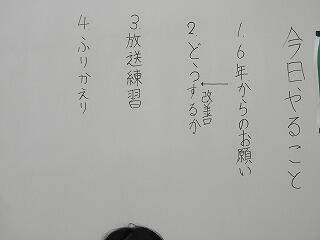 今日やること
1.6年からのお願い
改善
2.どうするか
3放送練習
4.ふりかえり